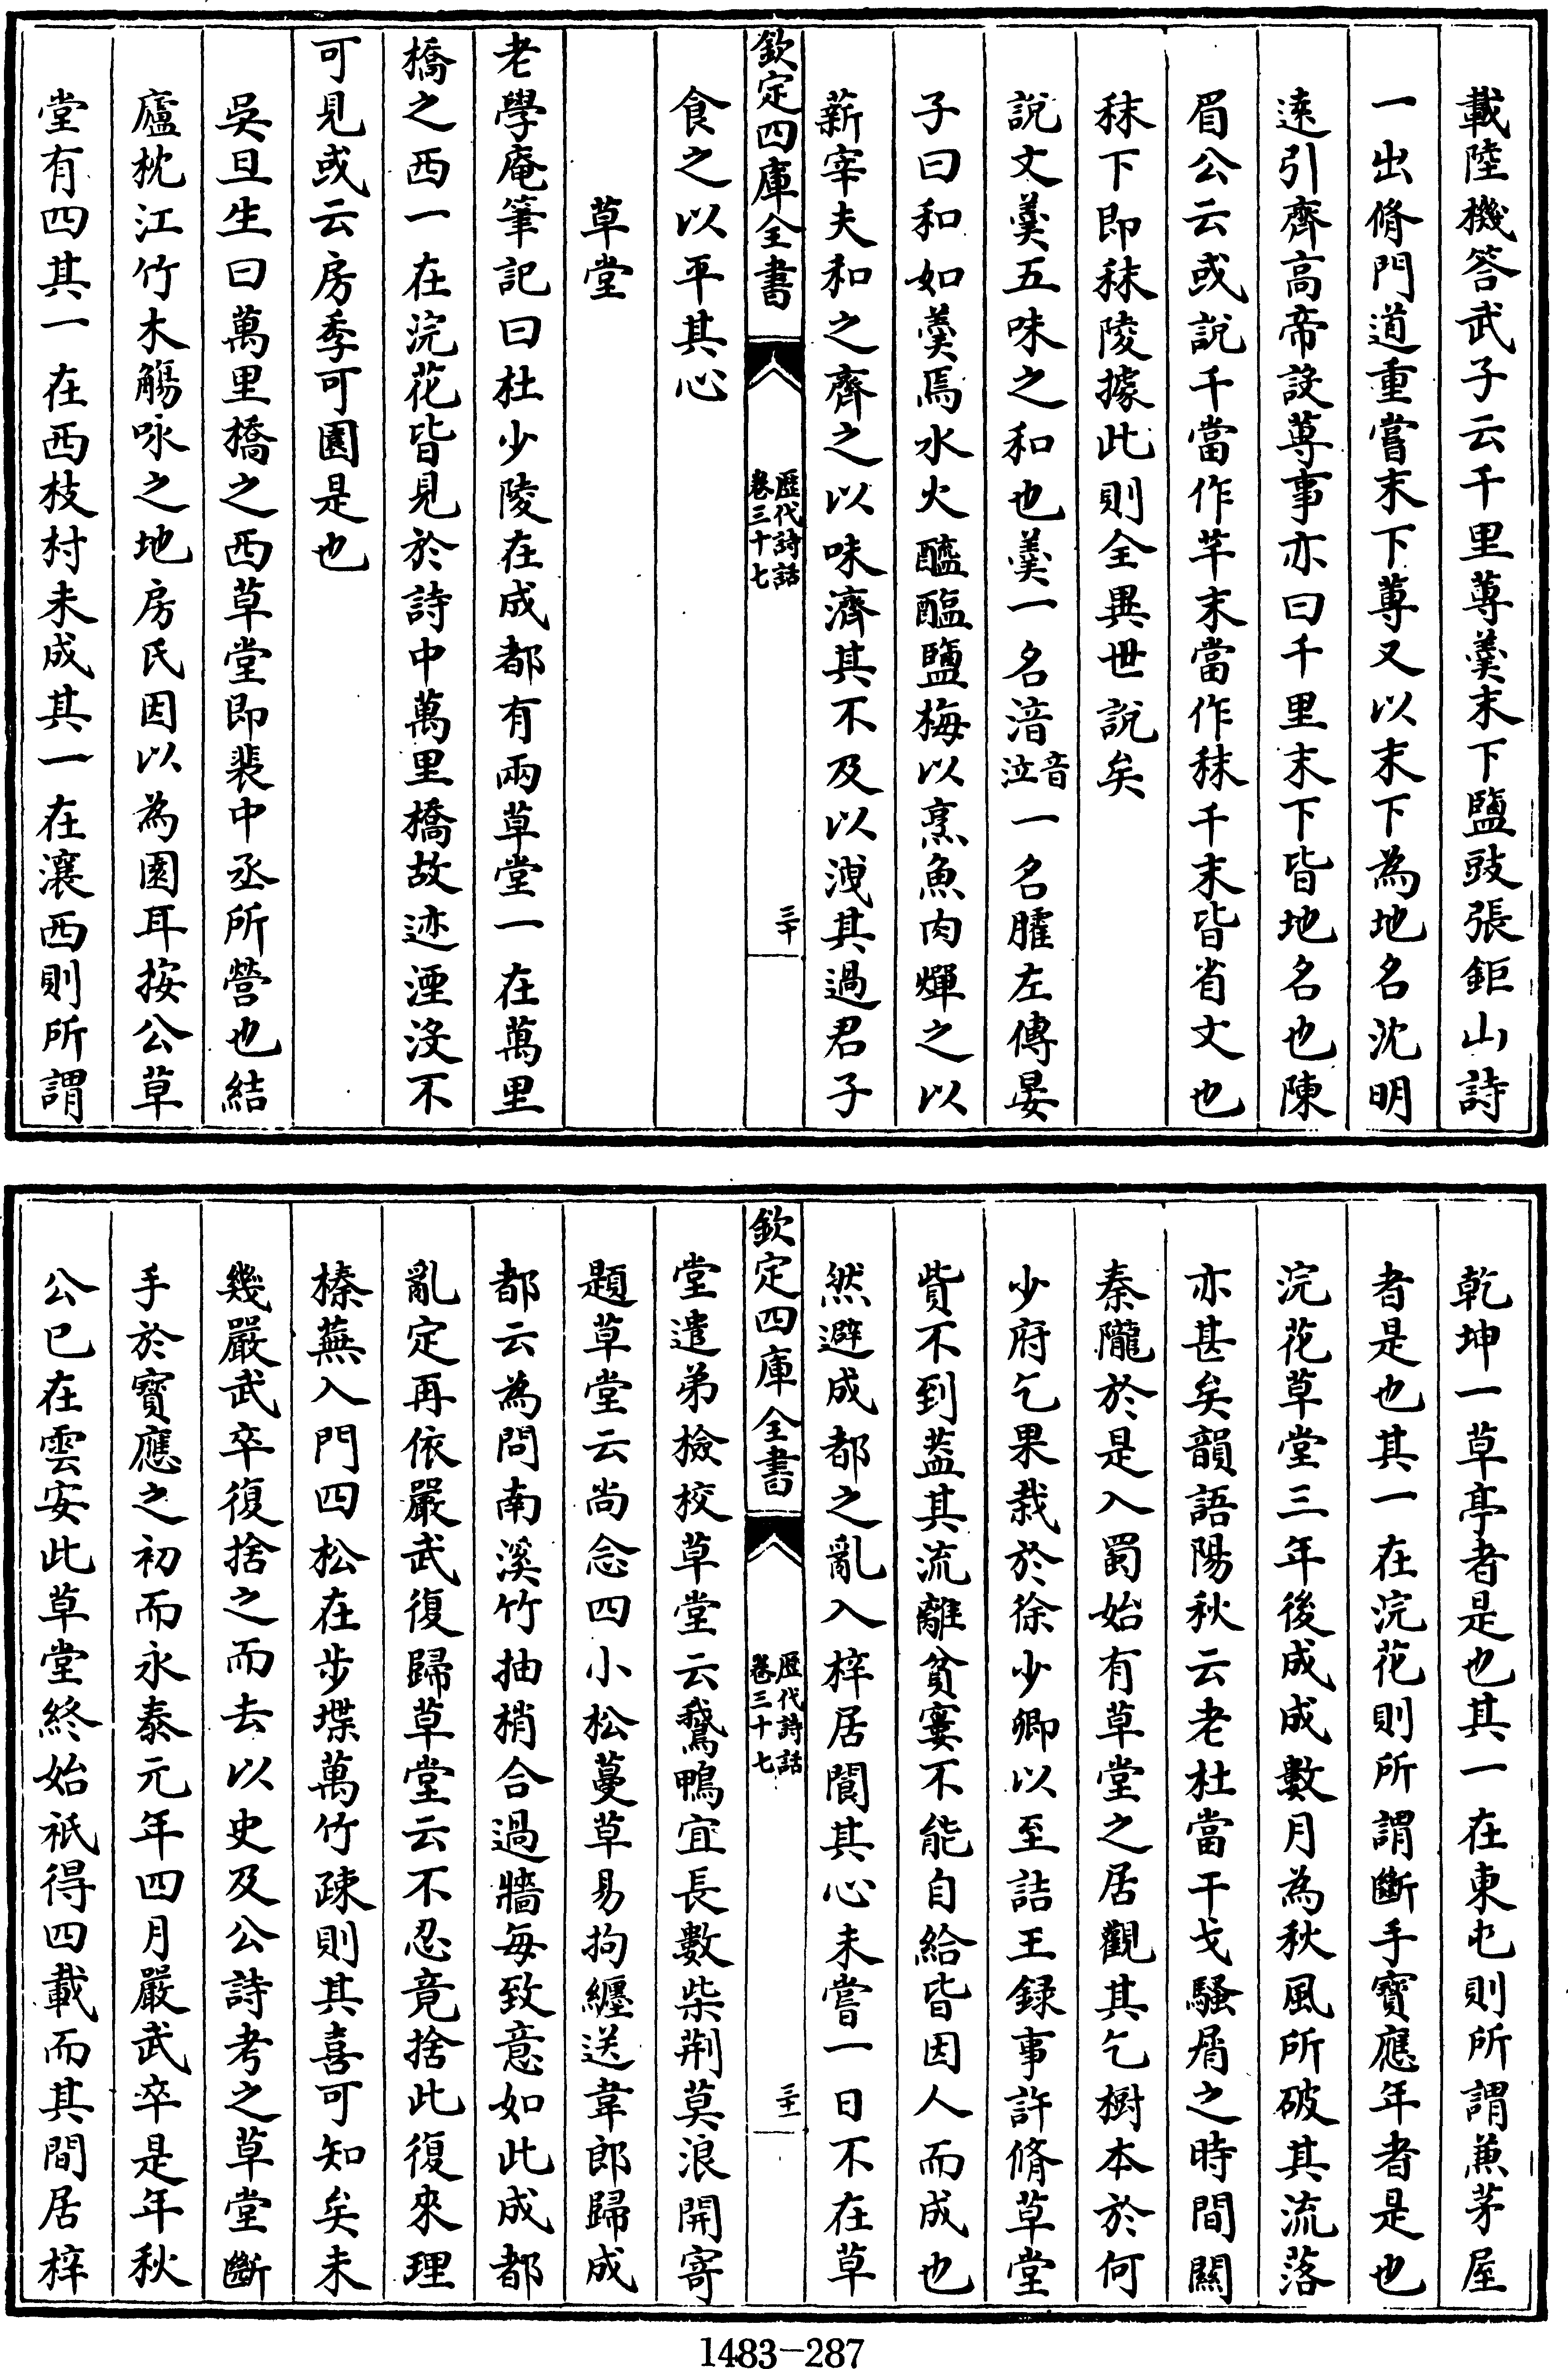 載陸機答武子云千里蓴羹末下鹽豉張鉅山詩
一出脩門道重嘗末下蓴又以末下為地名沈明
逺引齊高帝設蓴事亦曰千里末下皆地名也陳
眉公云或説千當作芊末當作秣千末皆省文也
秣下即秣陵據此則全異世説矣
說文羹五味之和也羹一名湆音泣一名臛左傳晏
子曰和如羹焉水火醯醢鹽梅以烹魚肉燀之以
薪宰夫和之齊之以味濟其不及以洩其過君子
欽定四庫全書
歴代詩話
卷三十七
三十
食之以平其心
草堂
老學庵筆記曰杜少陵在成都有兩草堂一在萬里
橋之西一在浣花皆見於詩中萬里橋故迹湮没不
可見或云房季可園是也
吳旦生曰萬里橋之西草堂即裴中丞所營也結
廬枕江竹木觴咏之地房氏因以為園耳按公草
堂有四其一在西枝村未成其一在瀼西則所謂
乾坤一草亭者是也其一在東屯則所謂蒹茅屋
者是也其一在浣花則所謂斷手寶應年者是也
浣花草堂三年後成成數月為秋風所破其流落
亦甚矣韻語陽秋云老杜當干戈騷屑之時間關
秦隴於是入蜀始有草堂之居觀其乞樹本於何
少府乞果栽於徐少卿以至詰王録事許脩草堂
貲不到蓋其流離貧窶不能自給皆因人而成也
然避成都之亂入梓居閬其心未嘗一日不在草
欽定四庫全書
歴代詩話
卷三十七
三十一
堂遣弟檢校草堂云鵞鴨宜長數柴荆莫浪開寄
題草堂云尚念四小松蔓草易拘纏送韋郎歸成
都云為問南溪竹抽梢合過牆每致意如此成都
亂定再依嚴武復歸草堂云不忍竟捨此復來理
榛蕪入門四松在步堞萬竹疎則其喜可知矣未
幾嚴武卒復捨之而去以史及公詩考之草堂斷
手於寶應之初而永泰元年四月嚴武卒是年秋
公已在雲安此草堂終始祇得四載而其間居梓
1483-287